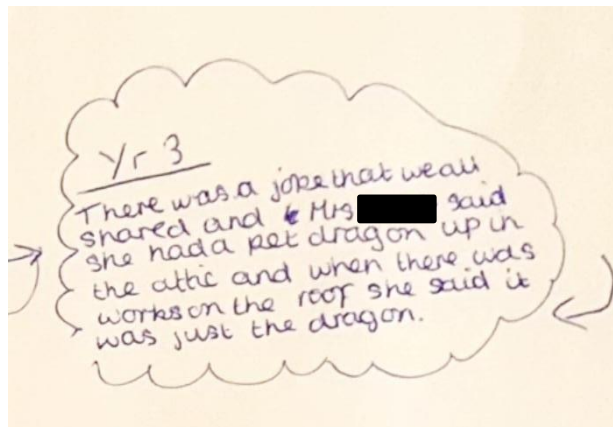 Yr 3
There was a joke that we all
shared and Mrs said
she had a pet dragon up in
the attic and when there was
works on the roof she said it
was just the dragon.